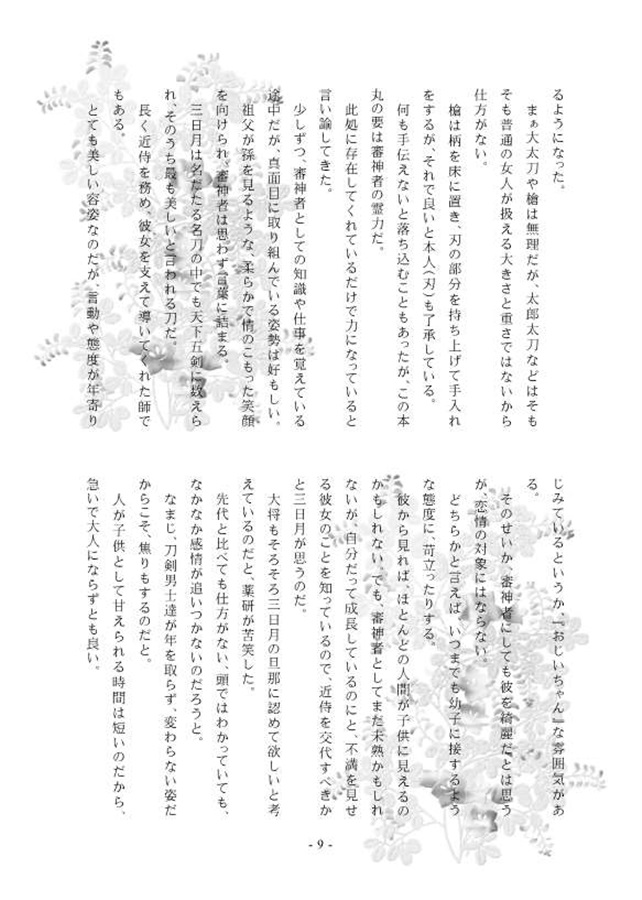 るようになった。
まぁ大太刀や槍は無理だが、太郎太刀などはそも
そも普通の女人が扱える大きさと重さではないから
仕方がない。
槍は柄を床に置き、刃の部分を持ち上げて手入れ
をするが、それで良いと本人(刃)も了承している。
何も手伝えないと落ち込むこともあったが、この本
丸の要は審神者の霊力だ。
此処に存在してくれているだけで力になっていると
言い諭してきた。
少しずつ、審神者としての知識や仕事を覚えている
途中だが、真面目に取り組んでいる姿勢は好もしい。
祖父が孫を見るような、柔らかで情のこもった笑顔
を向けられ、審神者は思わず言葉に詰まる。
三日月は名だたる名刀の中でも天下五剣に数えら
れ、そのうち最も美しいと言われる刀だ。
長く近侍を務め、彼女を支えて導いてくれた師で
もある。
とても美しい容姿なのだが、言動や態度が年寄り
じみているというか、『おじいちゃん』な雰囲気があ
る。
そのせいか、審神者にしても彼を綺麗だとは思う
が、恋情の対象にはならない。
どちらかと言えば、いつまでも幼子に接するよう
な態度に、苛立ったりする。
彼から見れば、ほとんどの人間が子供に見えるの
かもしれない。でも、審神者としてまだ未熟かもしれ
ないが、自分だって成長しているのにと、不満を見せ
る彼女のことを知っているので、近侍を交代すべきか
と三日月が思うのだ。
大将もそろそろ三日月の旦那に認めて欲しいと考
えているのだと、薬研が苦笑した。
先代と比べても仕方がない、頭ではわかっていても、
なかなか感情が追いつかないのだろうと。
なまじ、刀剣男士達が年を取らず、変わらない姿だ
からこそ、焦りもするのだと。
人が子供として甘えられる時間は短いのだから、
急いで大人にならずとも良い。
- 9 -